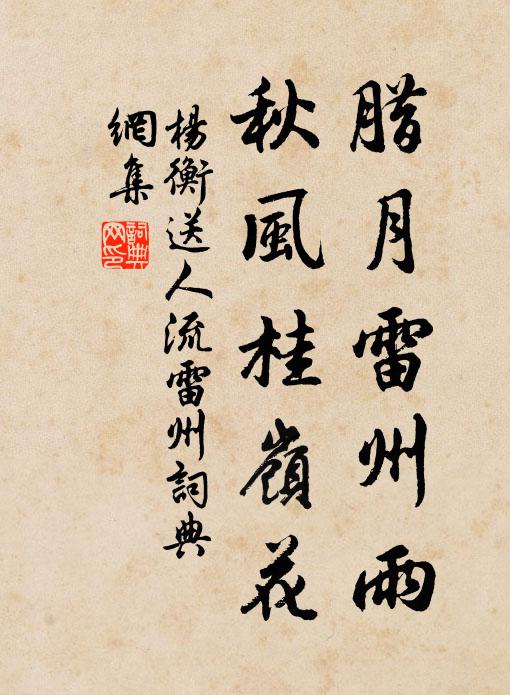 腊月雷州雨
秋風桂嶺花
楊衡送人流雷州詞典
網集
詞典
网印